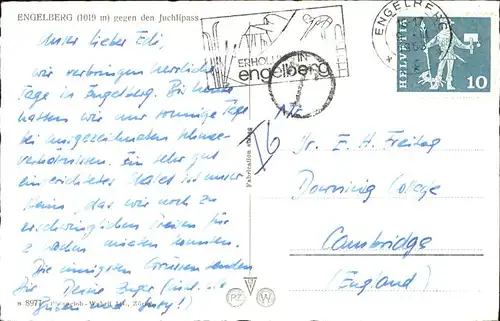 ENGELBERG (1019 m) gegen den Juchlipass
Unser lieber Edi,
wir verbringen herrliche
Tage in Engelberg. Bis heute
hatten wir nur sonnige Tage
bei ausgezeichneten Schnee-
verhältnissen. Ein sehr gut
eingerichtetes Chalet ist unser
Heim, das wir noch zu
erschwinglichen Preisen für
2 Wochen mieten konnten.
Die innigsten Grüsse senden
Dir Deine Zuger
ERHOLUNG IN
engelberg
ENGELBERG
HELVETIA
10
Mr.
Dr. E. H. Freitag
Downing College
Cambridge
(England)
PZ
W